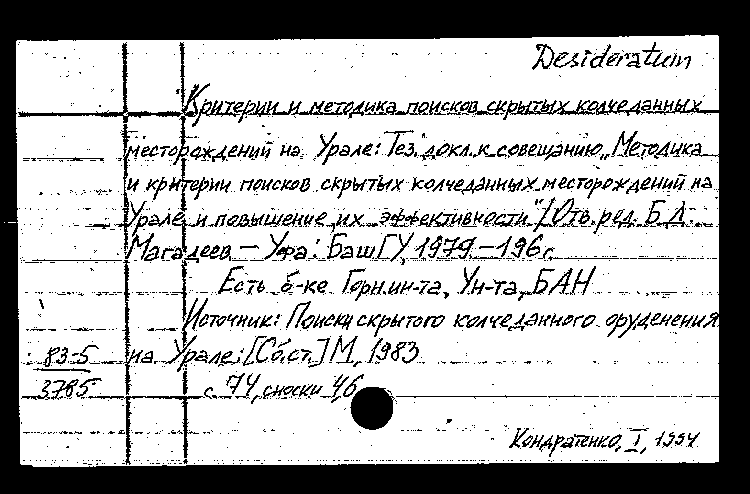 Desideratum
Критерии и методика поисков скрытых колчеданных
месторождений на Урале: Тез. докл. к совещанию „Методика
и критерии поисков скрытых колчеданных месторождений на
Урале и повышение их эффективности" / Отв. ред. Б.Д.
Магадеев – Уфа: БашГУ, 1979. – 196 с.
Есть б-ке Горн. ин-та, Ун-та, БАН
Источник: Поиски скрытого колчеданного оруденения
83-5 на Урале: [Сб. ст.] М., 1983
3785 с. 74, сноски 4,6
Кондратенко, I, 1994